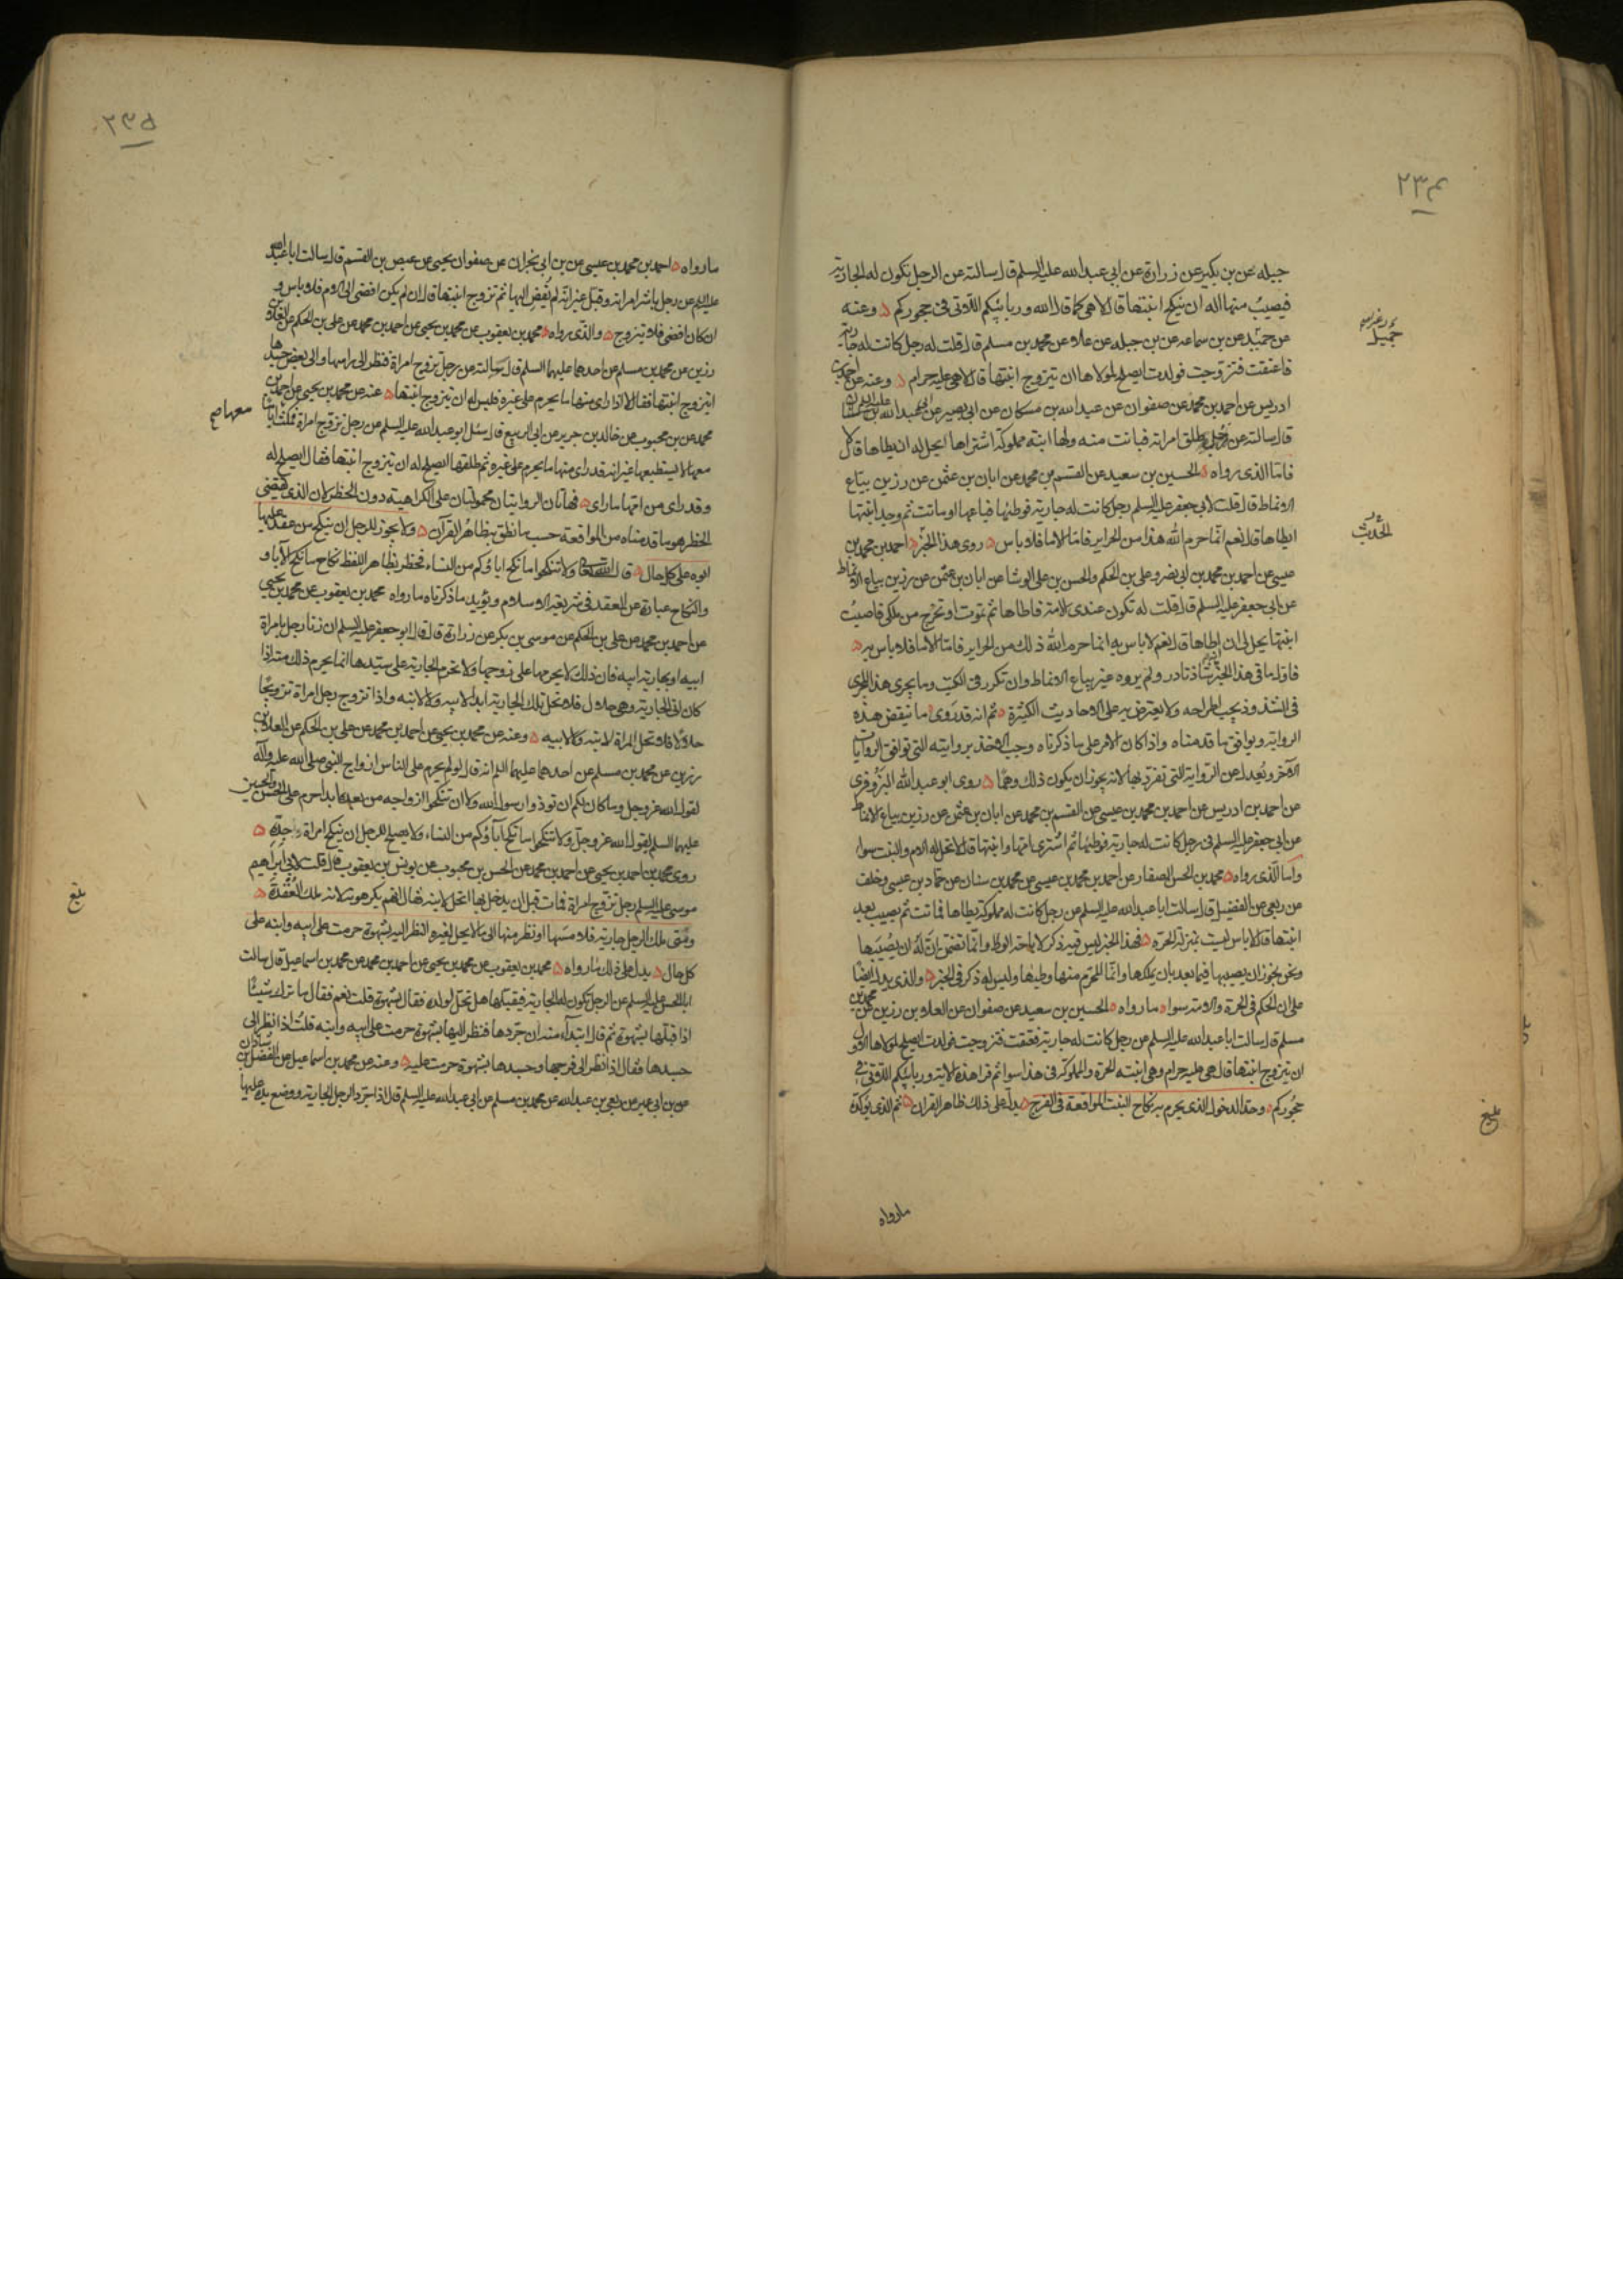 ٢٣٤
جبله عن بن بكير عن زرارة عن ابى عبد الله عليه السلم قال سالته عن الرجل تكون له الجارية
فيصيب منها اله ان ينكح ابنتها قال لا هى كما قال الله وربائبكم اللاتى فى حجوركم وعنه
عن حميد عن بن سماعه عن بن جبله عن علا عن محمد بن مسلم قال قلت له رجل كانت له جارية
فاعتقت فتزوجت فولدت ايصلح لمولاها ان يتزوج ابنتها قال لا هى عليه حرام وعنه عن احمد بن
ادريس عن احمد بن محمد عن صفوان عن عبد الله بن مسكان عن ابى بصير عن ابى عبد الله عليه السلم
قال سالته عن رجل طلق امراته فبانت منه ولها ابنة مملوكة اشتراها ايحل له ان يطاها قال لا
فاما الذى رواه الحسين بن سعيد عن القسم بن محمد عن ابان بن عثمن عن رزين بياع
الانماط قال قلت لابى جعفر عليه السلم رجل كانت له جارية فوطئها فباعها او ماتت ثم وجد ابنتها
ايطاها قال نعم انما حرم الله هذا من الحراير فاما الاما فلا باس روى هذا الخبر احمد بن محمد بن
عيسى عن احمد بن محمد بن ابى نصر وعلى بن الحكم والحسن بن على الوشا عن ابان بن عثمن عن رزين بياع الانماط
عن ابى جعفر عليه السلم قال قلت له تكون عندى الامة فاطاها ثم تموت او تخرج من ملكى فاصيب
ابنتها يحل لى ان اطاها قال نعم لا باس به انما حرم الله ذلك من الحراير فاما الاما فلا باس به
فاول ما فى هذا الخبر انه شاذ نادر ولم يروه غير بياع الانماط وان تكرر فى الكتب وما يجرى هذا المجرى
فى الشذوذ يجب اطراحه ولا يعترض به على الاحاديث الكثيرة ثم انه قد روى ما ينقض هذه
الرواية ويوافق ما قدمناه واذا كان الامر على ما ذكرناه وجب الاخذ بروايته التى توافق الروايات
الاخر ويعدل عن الرواية التى تفرد بها لانه يجوز ان يكون ذلك وهما روى ابو عبد الله البزوفرى
عن احمد بن ادريس عن احمد بن محمد بن عيسى عن القسم بن محمد عن ابان بن عثمن عن رزين بياع الانماط
عن ابى جعفر عليه السلم فى رجل كانت له جارية فوطئها ثم اشترى امها وابنتها قال لا تحل له الام والبنت سوا
واما الذى رواه محمد بن الحسن الصفار عن احمد بن محمد بن عيسى عن محمد بن سنان عن حماد بن عيسى وخلف
عن ربعى عن الفضيل قال سالت ابا عبد الله عليه السلم عن رجل كانت له مملوكة يطاها فماتت ثم يصيب بعد
ابنتها قال لا باس ليست بمنزلة الحرة فهذا الخبر ليس فيه ذكر لاباحة الوطى وانما تضمن ان له ان يصيبها
ونحن نجوز ان يصيبها فيما بعد بان يملكها وانما المحرم منها وطيها وليس له ذكر فى الخبر والذى يدل ايضا
على ان الحكم فى الحرة والامة سوا ما رواه الحسين بن سعيد عن صفوان عن العلا بن رزين عن محمد بن
مسلم قال سالت ابا عبد الله عليه السلم عن رجل كانت له جارية فعتقت فتزوجت فولدت ايصلح لمولاها الاول
ان يتزوج ابنتها قال هى عليه حرام وهى ابنته الحرة والمملوكة فى هذا سوا ثم قرا هذه الاية وربائبكم اللاتى فى
حجوركم وحد الدخول الذى يحرم به نكاح البنت المواقعة فى الفرج يدل على ذلك ظاهر القران ثم الذى يؤكده
جميل
الحديث
بلغ
مارواه
٢٣٥
مارواه احمد بن محمد بن عيسى عن بن ابى نجران عن صفوان بن يحيى عن عيص بن القسم قال سالت ابا عبد الله
عليه السلم عن رجل باشر امراته وقبل غير انه لم يفض اليها ثم تزوج ابنتها قال ان لم يكن افضى الى الام فلا باس و
ان كان افضى فلا يتزوج والذى رواه محمد بن يعقوب عن محمد بن يحيى عن احمد بن محمد عن على بن الحكم عن العلا بن
رزين عن محمد بن مسلم عن احدهما عليهما السلم قال سالته عن رجل تزوج امراة فنظر الى راسها والى بعض جسدها
ايتزوج ابنتها فقال لا اذا راى منها ما يحرم على غيره فليس له ان يتزوج ابنتها عنه عن محمد بن يحيى عن احمد بن
محمد عن بن محبوب عن خالد بن جرير عن ابى الربيع قال سئل ابو عبد الله عليه السلم عن رجل تزوج امراة فمكث اياما
معها لا يستطيعها غير انه قد راى منها ما يحرم على غيره ثم طلقها ايصلح له ان يتزوج ابنتها فقال ايصلح له
وقد راى من امها ما راى فهاتان الروايتان محمولتان على الكراهية دون الحظر لان الذى يقتضى
الحظر هو ما قدمناه من المواقعة حسب ما نطق به ظاهر القرآن ولا يجوز للرجل ان ينكح من عقد عليها
ابوه على كل حال قال الله تعالى ولا تنكحوا ما نكح اباؤكم من النساء فحظر بظاهر اللفظ نكاح ما نكح الابا و
والنكاح عبارة عن العقد فى شريعة الاسلام ويؤيد ما ذكرناه ما رواه محمد بن يعقوب عن محمد بن يحيى
عن احمد بن محمد عن على بن الحكم عن موسى بن بكر عن زرارة قال قال ابو جعفر عليه السلم ان زنا رجل بامراة
ابيه او بجارية ابيه فان ذلك لا يحرمها على زوجها ولا تحرم الجارية على سيدها انما يحرم ذلك منه اذا
كان اتى الجارية وهى حلال فلا تحل تلك الجارية ابدا لابيه ولا لابنه واذا تزوج رجل امراة تزويجا
حلالا فلا تحل المراة لابنه ولا لابيه وعنه عن محمد بن يحيى عن احمد بن محمد عن على بن الحكم عن العلا بن
رزين عن محمد بن مسلم عن احدهما عليهما السلم انه قال لو لم يحرم على الناس ازواج النبى صلى الله عليه واله
لقول الله عز وجل وما كان لكم ان توذوا رسول الله ولا ان تنكحوا ازواجه من بعده ابدا حرم على الحسن والحسين
عليهما السلم لقول الله عز وجل ولا تنكحوا ما نكح آباؤكم من النساء ولا يصلح للرجل ان ينكح امراة جده
روى محمد بن احمد بن يحيى عن احمد بن محمد عن الحسن بن محبوب عن يونس بن يعقوب قال قلت لابى ابراهيم
موسى عليه السلم رجل تزوج امراة فمات قبل ان يدخل بها اتحل لابنه فقال انهم يكرهونه لانه ملك العقدة
ومتى ملك الرجل جارية فلامسها او نظر منها الى ما لا يحل لغيره النظر اليه بشهوة حرمت على ابيه وابنه على
كل حال يدل على ذلك ما رواه محمد بن يعقوب عن محمد بن يحيى عن احمد بن محمد عن محمد بن اسماعيل قال سالت
ابا الحسن عليه السلم عن الرجل تكون له الجارية فيقبلها هل تحل لولده فقال بشهوة قلت نعم فقال ما ترك شيئا
اذا قبلها بشهوة ثم قال ابتداء منه ان جردها فنظر اليها بشهوة حرمت على ابيه وابنه قلت اذا نظر الى
جسدها فقال اذا نظر الى فرجها وجسدها بشهوة حرمت عليه وعنه عن محمد بن اسماعيل عن الفضل بن شاذان
عن بن ابى عمير عن ربعى بن عبد الله عن محمد بن مسلم عن ابى عبد الله عليه السلم قال اذا جرد الرجل الجارية ووضع يده عليها
معها صح
بلغ